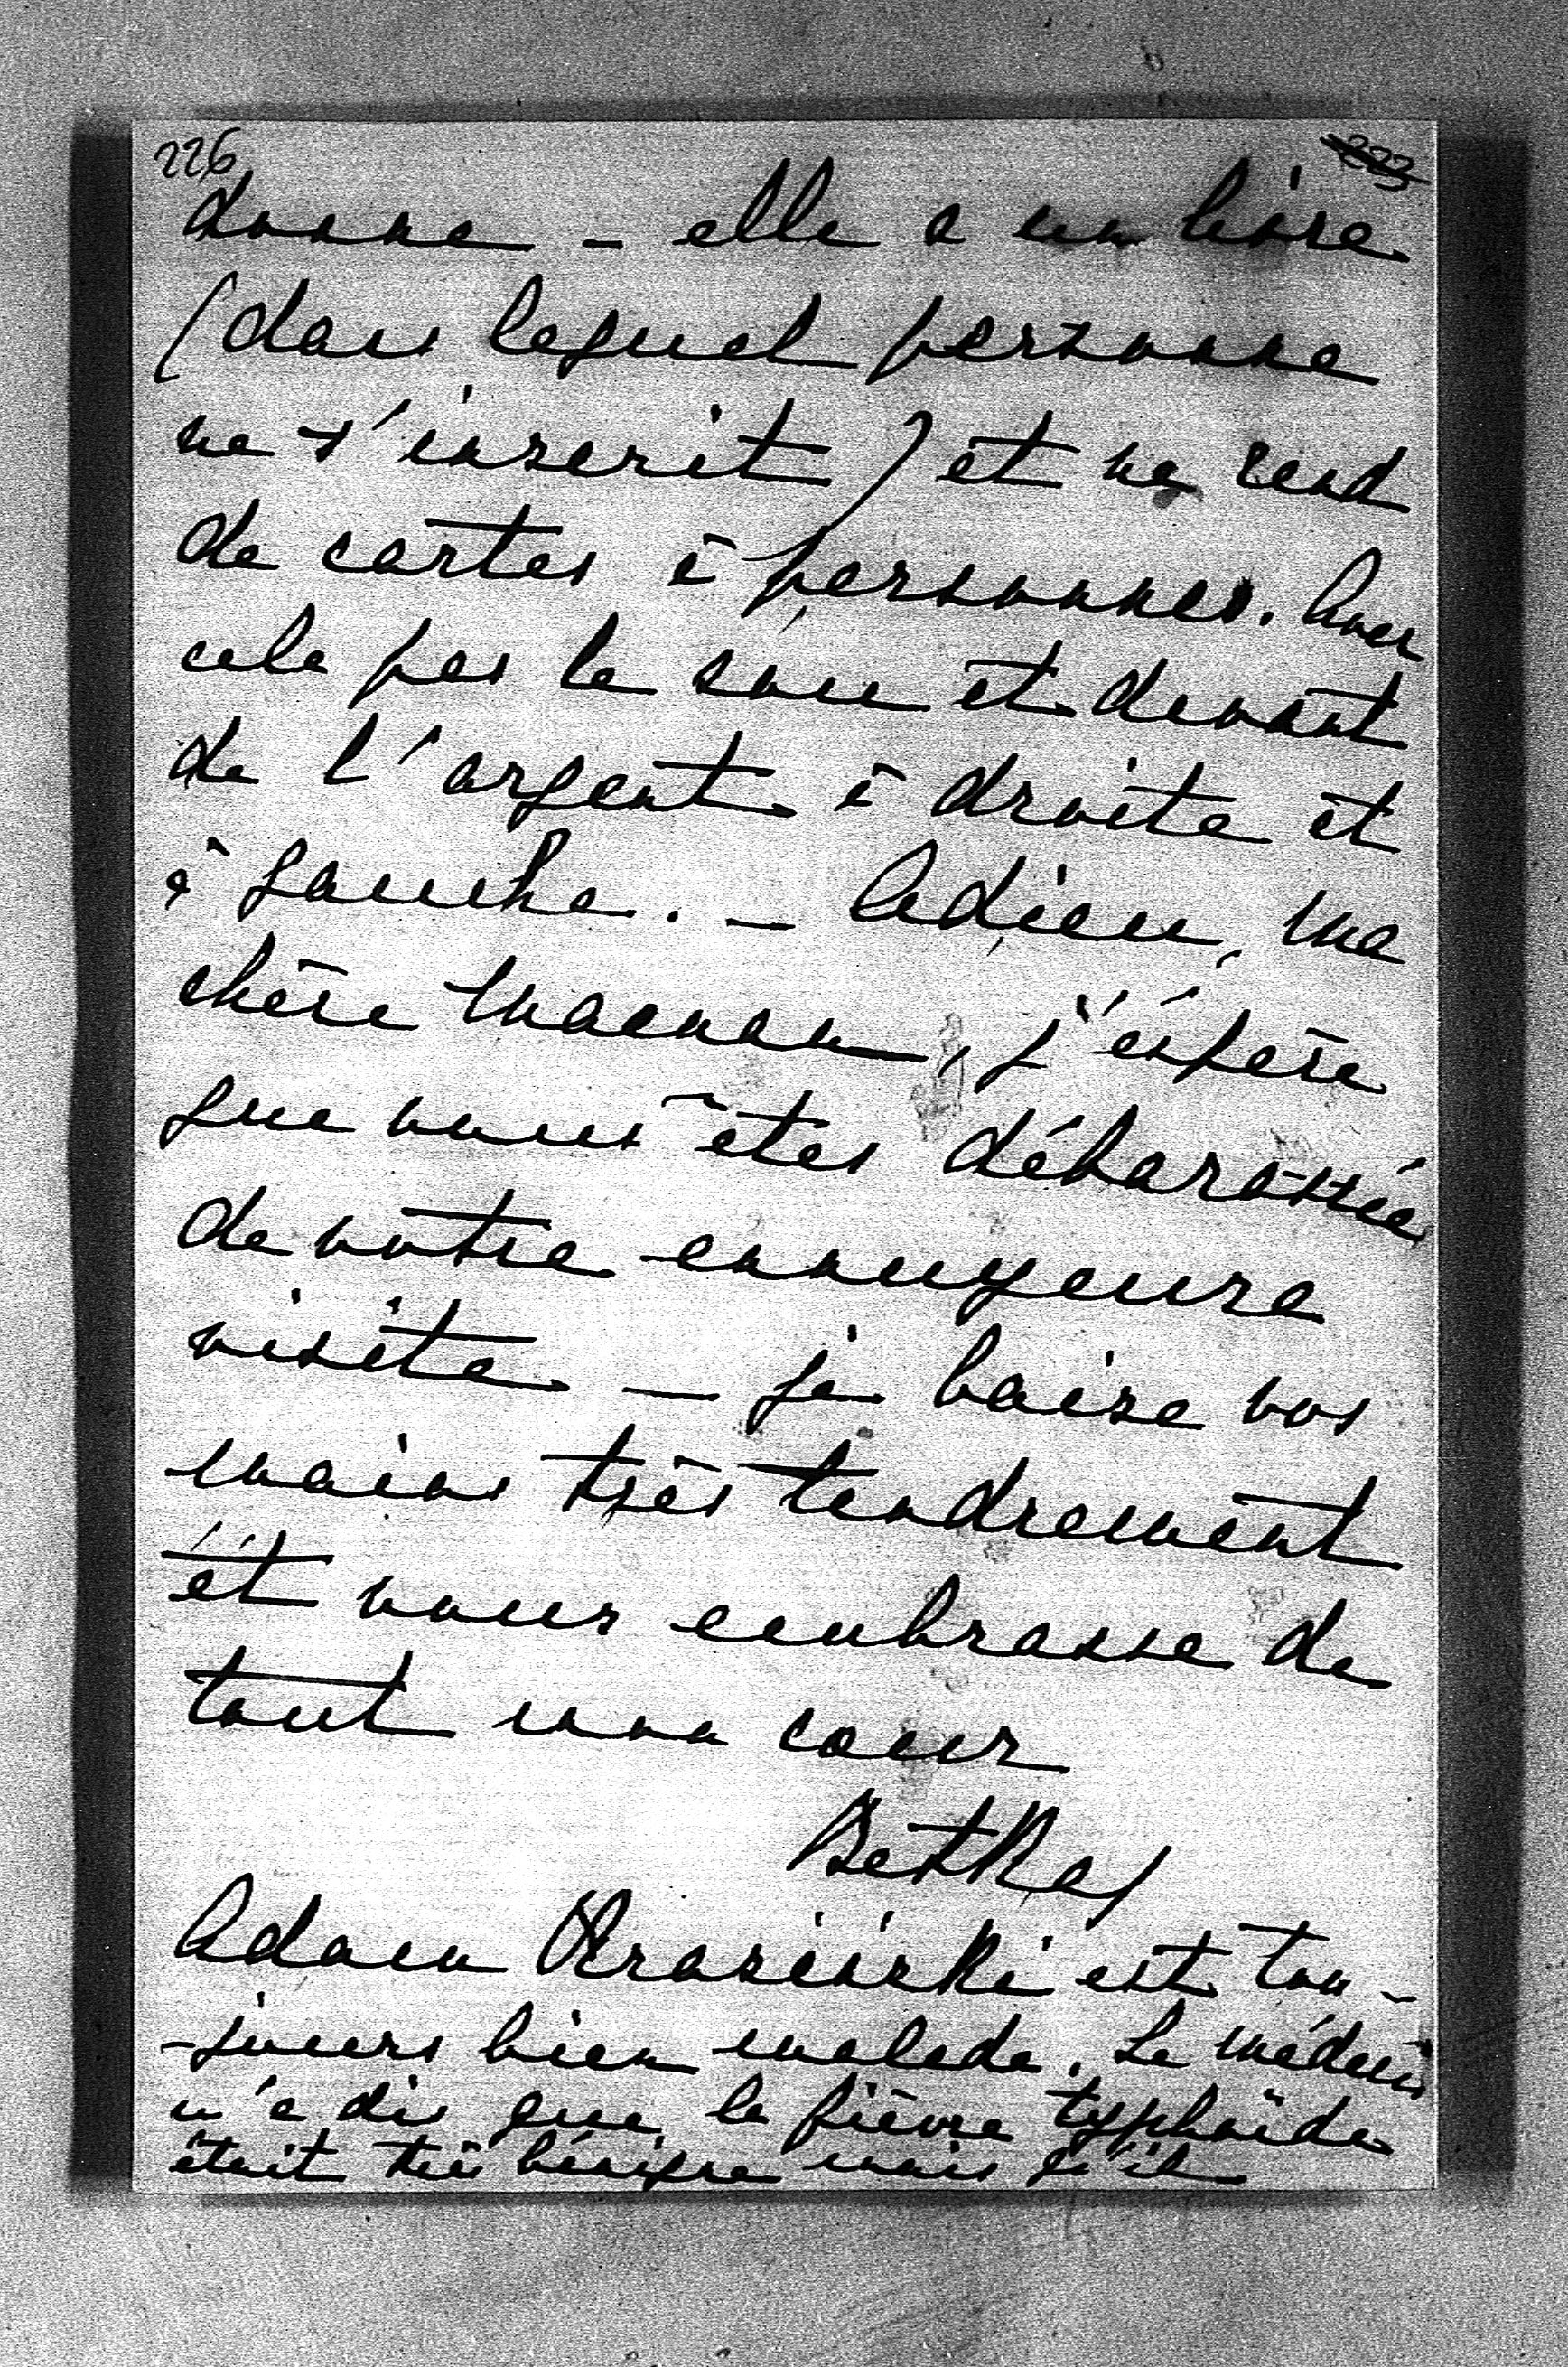 226 223
donne – elle a un livre
(dans lequel personne
ne s'inscrit) et ne rend
de cartes à personnes. Avec
cela pas le sou et devant
de l'argent à droite et
à gauche. – Adieu, ma
chère Maman, j'éspère
que vous êtes débarassée
de votre ennuyeuse
visite – je baise vos
mains très tendrement
et vous embrasse de
tout mon coeur
Betka
Adam Krasiński est tou-
-jours bien malade. Le médecin
m'a dis que la fièvre typhoïde
était très bénigne mais qu'il